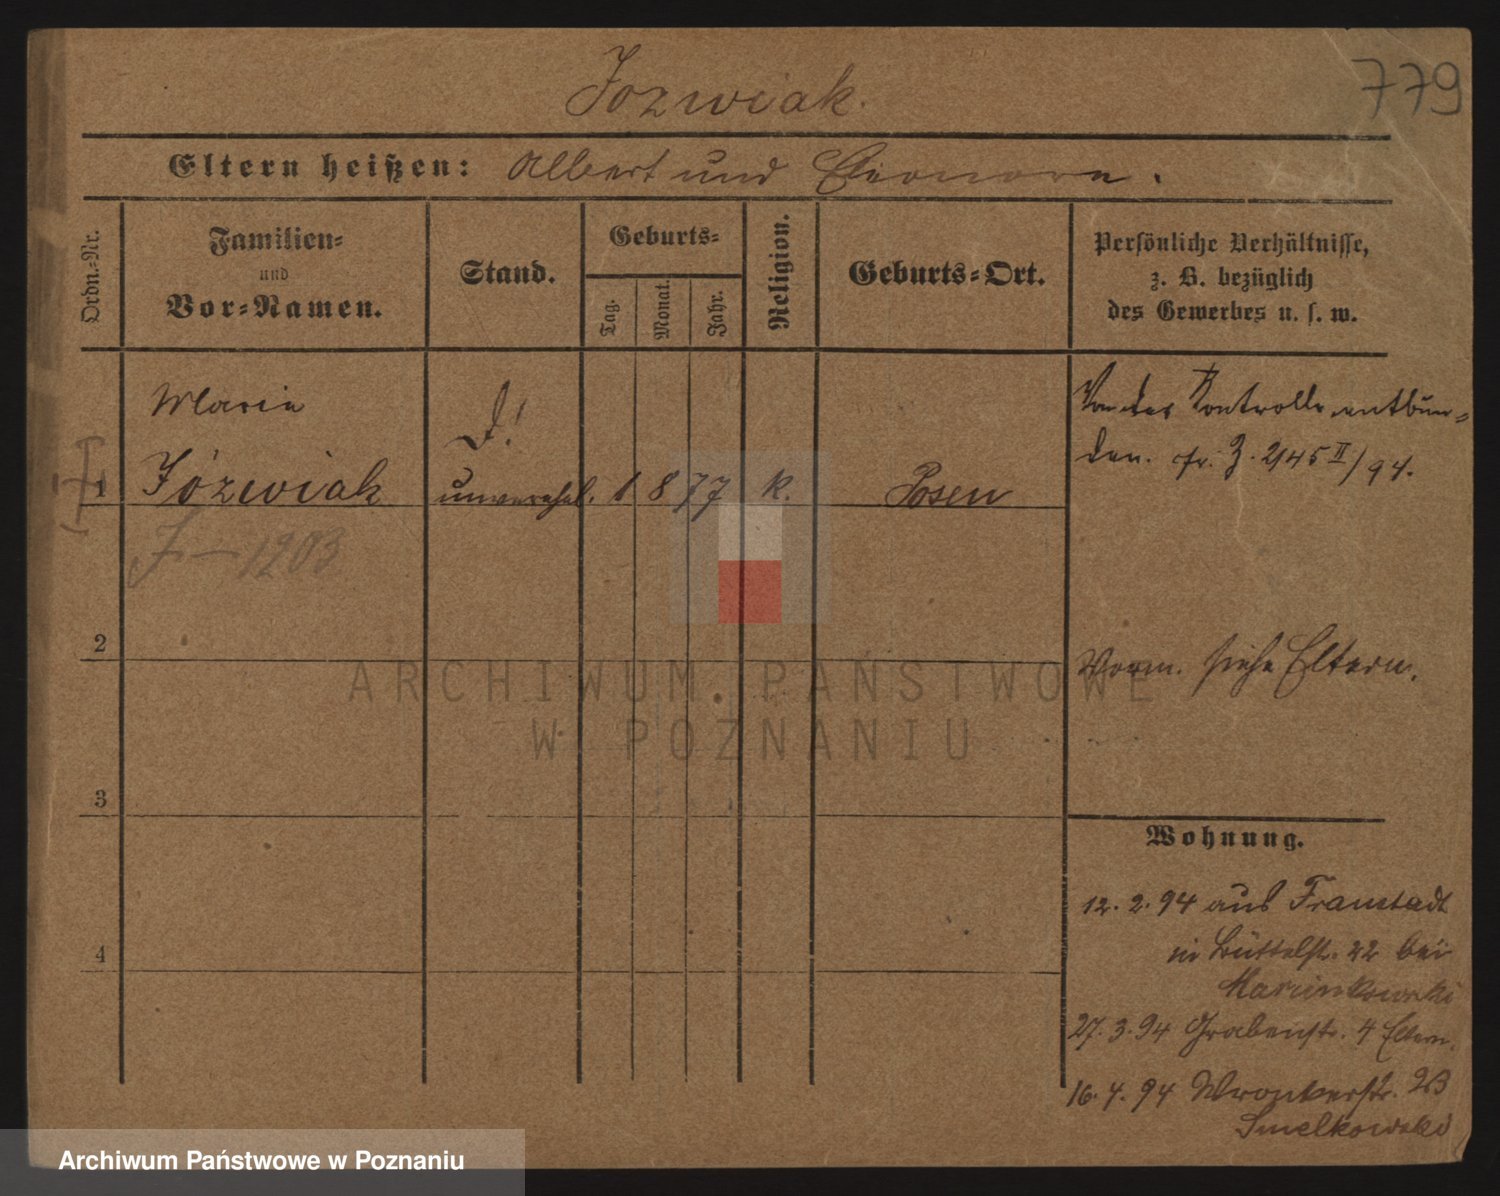 Jozwiak.
779
Eltern heißen: Albert und Eleonore.
Ordn.-Nr.
Familien-
und
Vor-Namen.
Stand.
Geburts-
Tag.
Monat.
Jahr.
Religion.
Geburts-Ort.
Persönliche Verhältnisse,
z. B. bezüglich
des Gewerbes u. s. w.
Marie
1 Józwiak
unverehel. 1 8 77 k. Posen
J-1203
Von der Kontrolle entbun-
den. Z. 2145 II/94.
2
Vorm. siehe Eltern.
3
4
Wohnung.
12. 2. 94 aus Fraustadt
in Büttelstr. 22 bei
Marcinkowski
27. 3. 94 Grabenstr. 4 Eltern.
16. 4. 94 Wronkerstr. 23
Smelkowski
ARCHIWUM PAŃSTWOWE
W POZNANIU
Archiwum Państwowe w Poznaniu